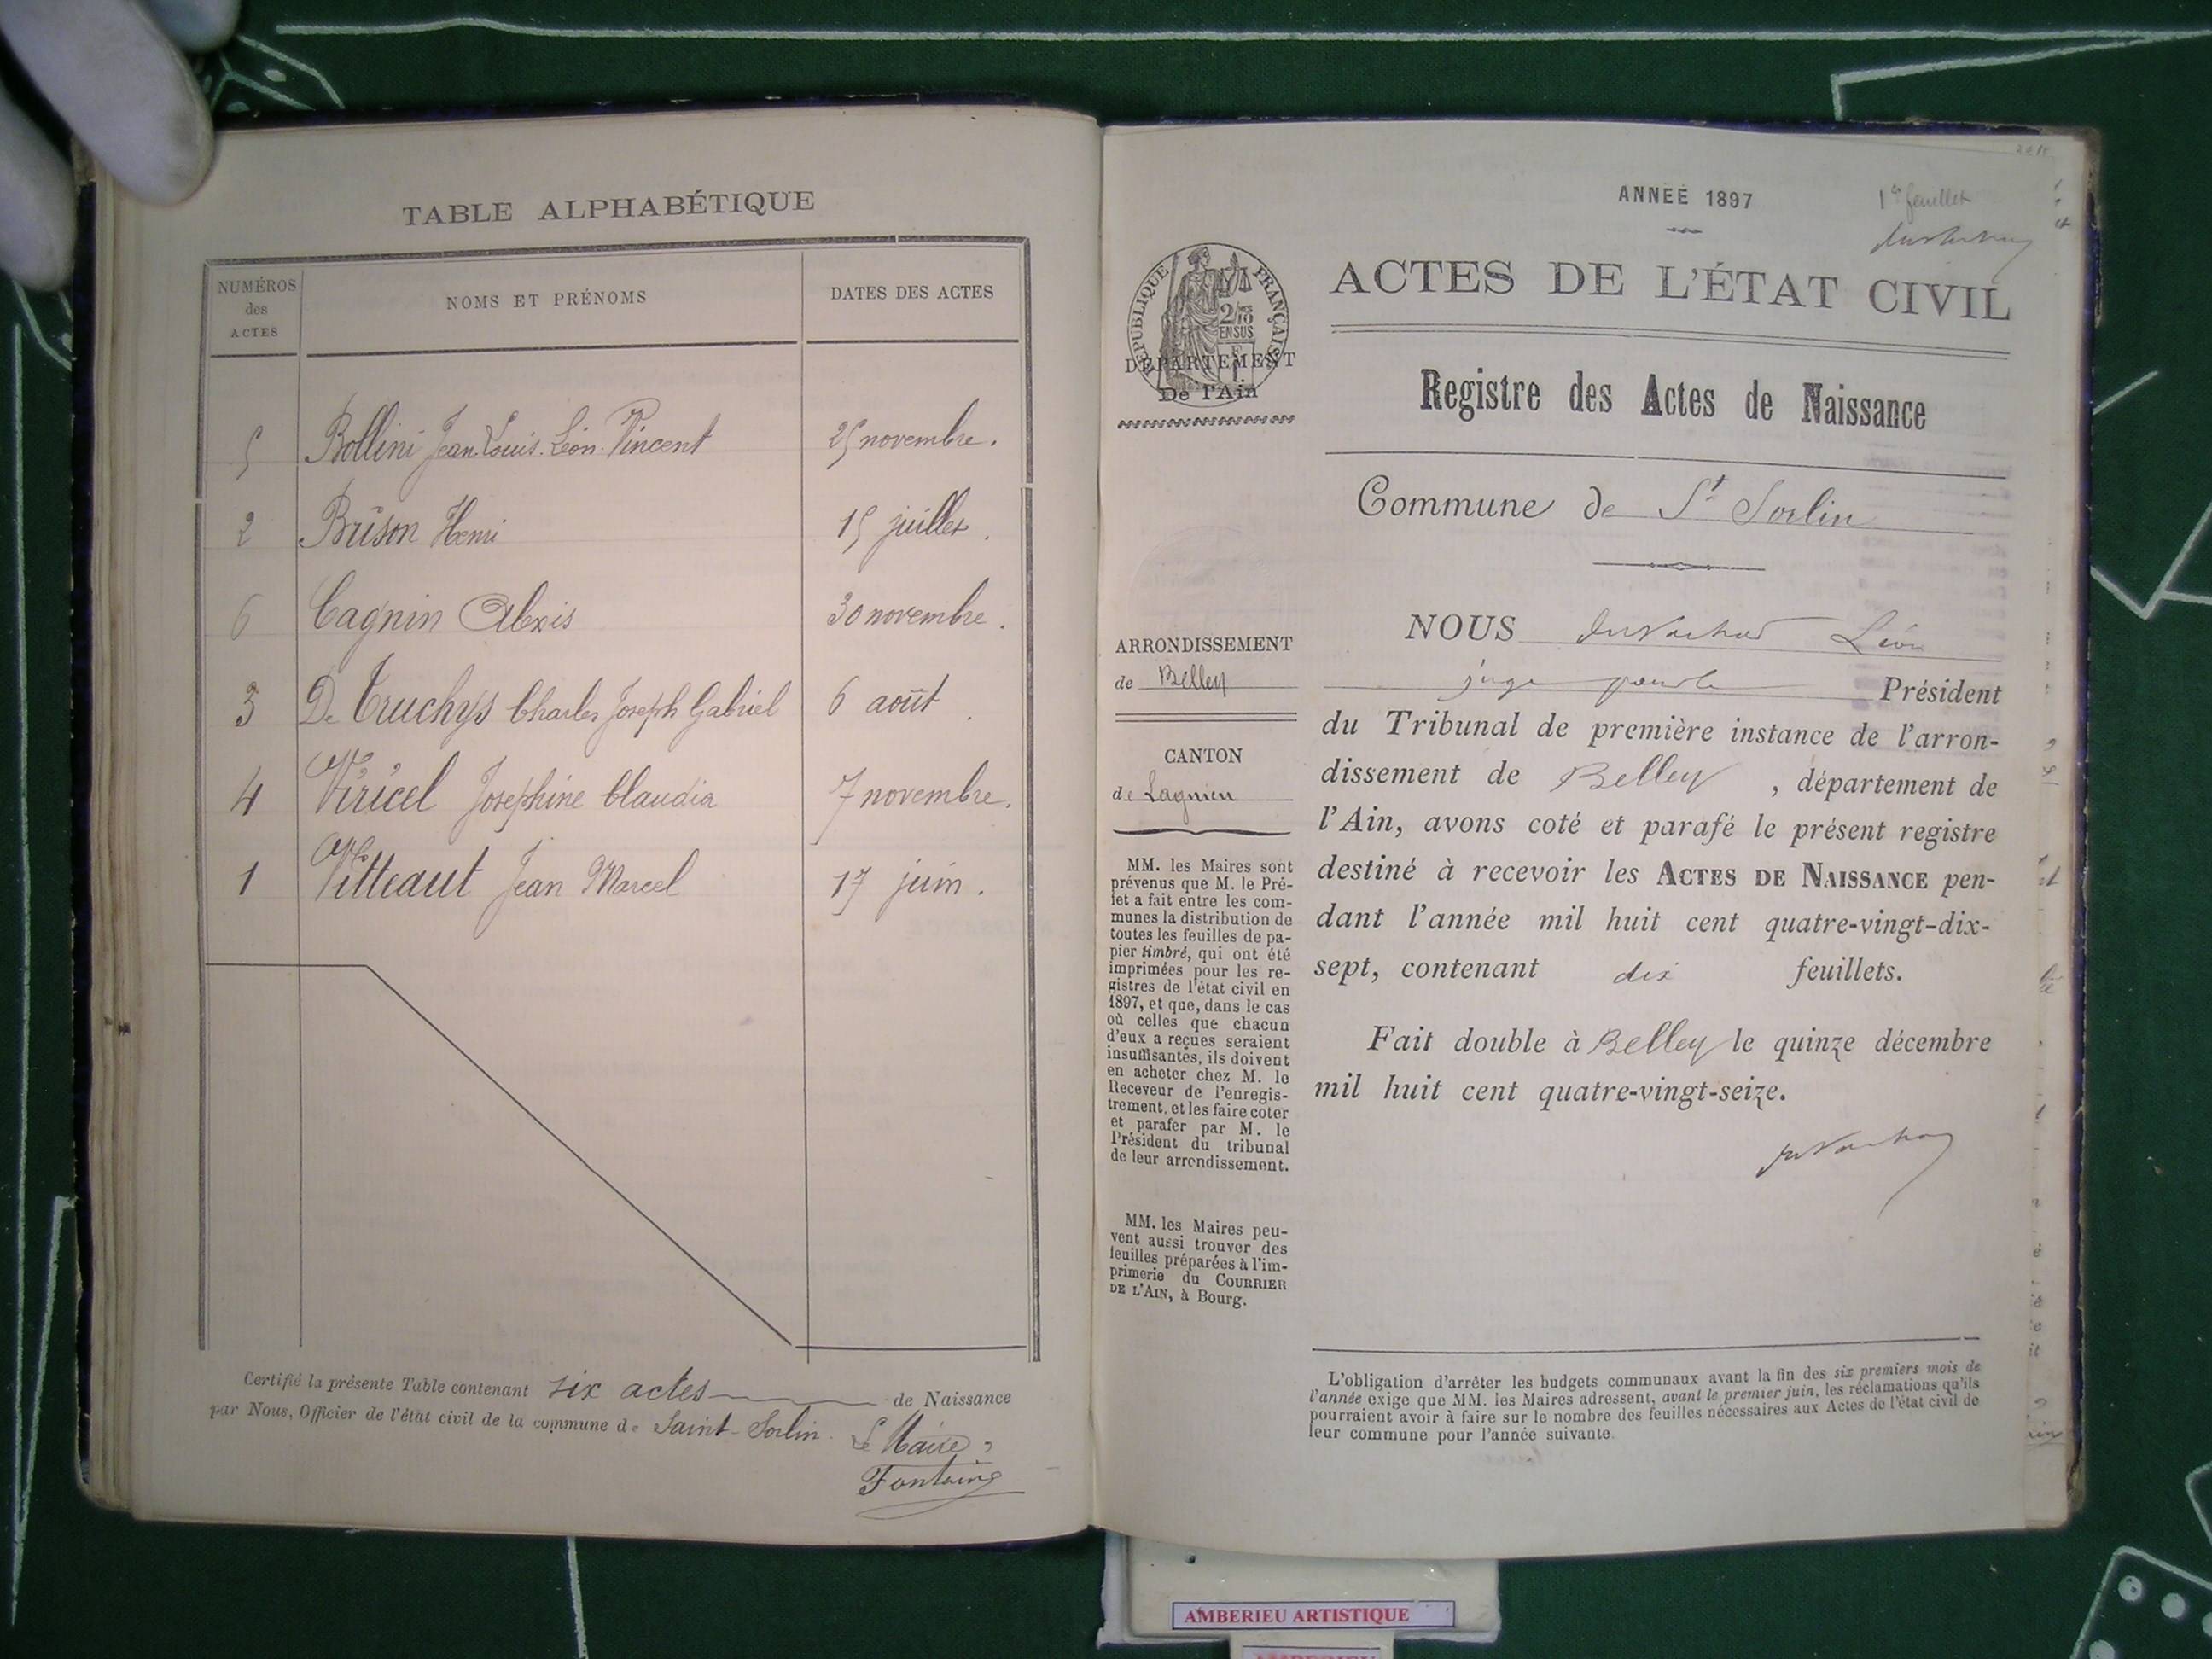 TABLE ALPHABÉTIQUE
NUMÉROS
des
ACTES
NOMS ET PRÉNOMS
DATES DES ACTES
5 Bollini Jean Louis Léon Vincent 25 novembre.
2 Brison Henri 15 juillet.
6 Cagnin Alexis 30 novembre.
3 De Truchys Charles Joseph Gabriel 6 août.
4 Viricel Joséphine Claudia 7 novembre.
1 Vitteaut Jean Marcel 17 juin.
Certifié la présente Table contenant six actes de Naissance
par Nous, Officier de l'état civil de la commune de Saint-Sorlin.
Le Maire,
Fontaine
ANNÉE 1897
1er feuillet
ACTES DE L'ÉTAT CIVIL
RÉPUBLIQUE FRANÇAISE
2/10
EN SUS
DÉPARTEMENT
De l'Ain
Registre des Actes de Naissance
Commune de St Sorlin
ARRONDISSEMENT
de Belley
CANTON
de Lagnieu
MM. les Maires sont
prévenus que M. le Pré-
fet a fait entre les com-
munes la distribution de
toutes les feuilles de pa-
pier timbré, qui ont été
imprimées pour les re-
gistres de l'état civil en
1897, et que, dans le cas
où celles que chacun
d'eux a reçues seraient
insuffisantes, ils doivent
en acheter chez M. le
Receveur de l'enregis-
trement, et les faire coter
et parafer par M. le
Président du tribunal
de leur arrondissement.
MM. les Maires peu-
vent aussi trouver des
feuilles préparées à l'im-
primerie du COURRIER
DE L'AIN, à Bourg.
NOUS Léon
juge pour le Président
du Tribunal de première instance de l'arron-
dissement de Belley, département de
l'Ain, avons coté et parafé le présent registre
destiné à recevoir les ACTES DE NAISSANCE pen-
dant l'année mil huit cent quatre-vingt-dix-
sept, contenant dix feuillets.
Fait double à Belley le quinze décembre
mil huit cent quatre-vingt-seize.
L'obligation d'arrêter les budgets communaux avant la fin des six premiers mois de
l'année exige que MM. les Maires adressent, avant le premier juin, les réclamations qu'ils
pourraient avoir à faire sur le nombre des feuilles nécessaires aux Actes de l'état civil de
leur commune pour l'année suivante.
AMBERIEU ARTISTIQUE